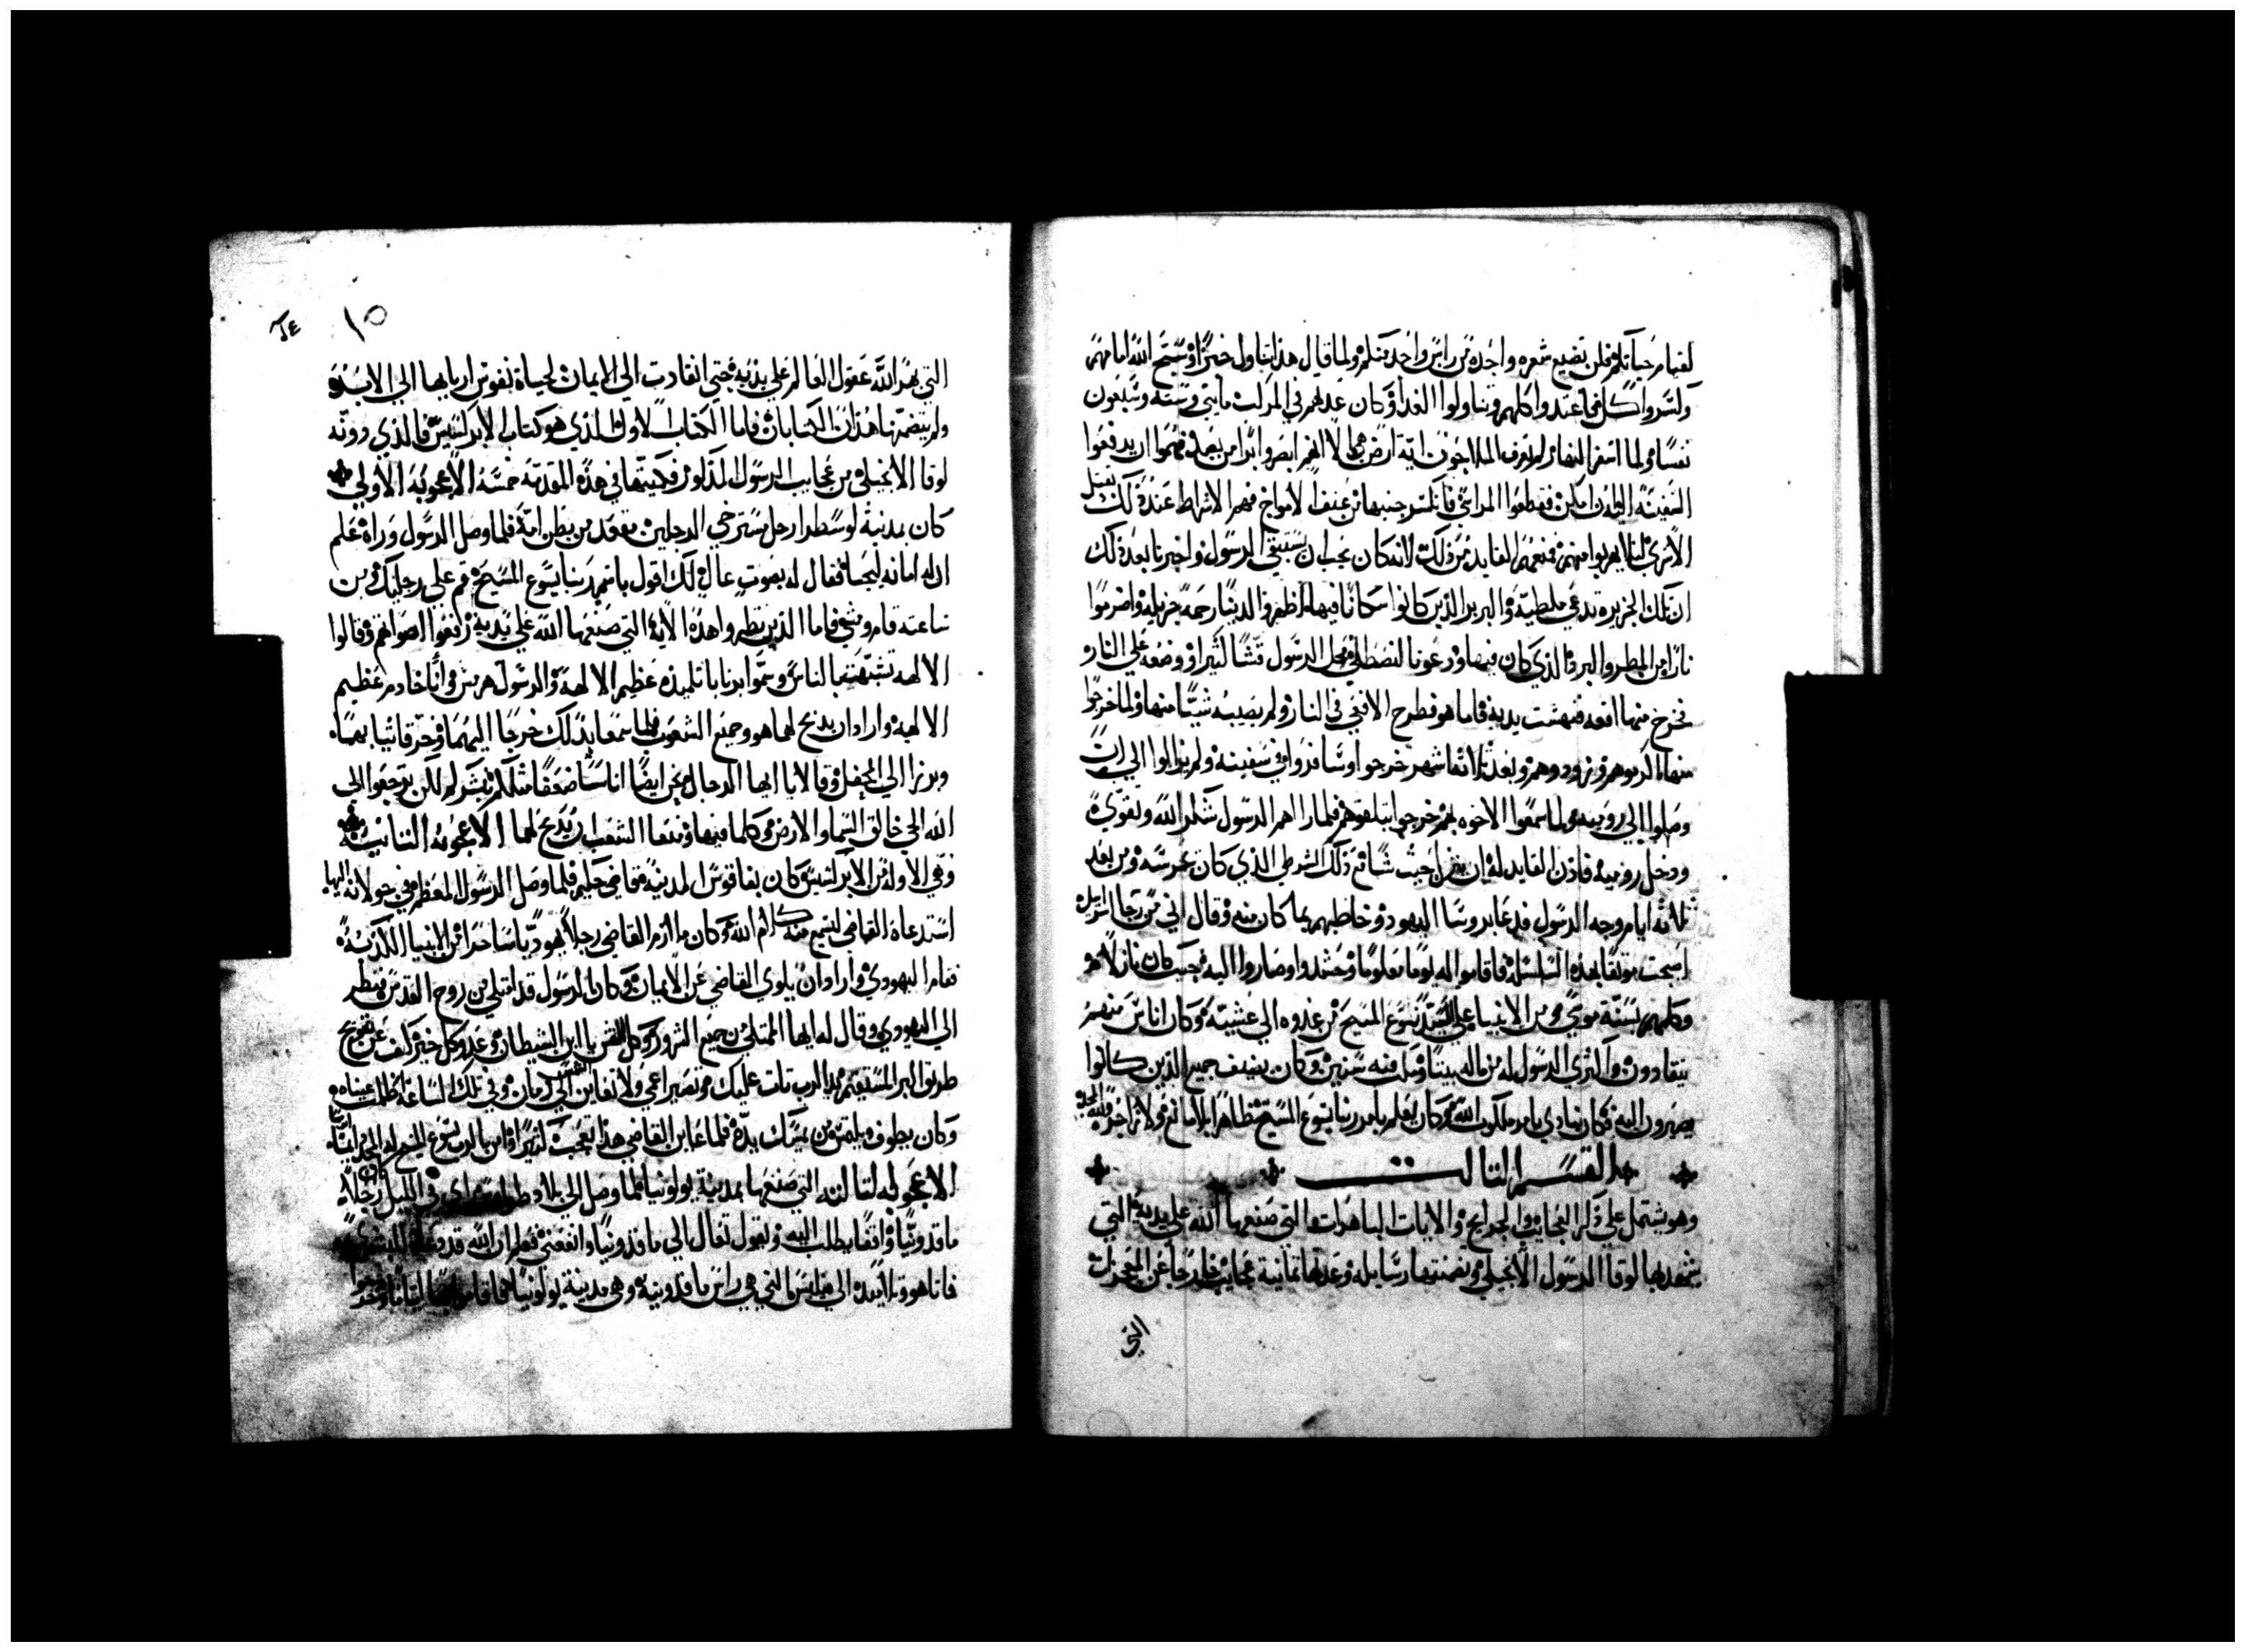 لقيام حياتكم فلن تضيع شعره واحدة من راس واحد منكم ولما قال هذا تناول خبزًا وسبح الله امامهم
وكسر واكل فاعتدوا كلهم وتناولوا الغدا وكان عددهم في المركب مايتي وسته وسبعون
نفسًا ولما اسفر النهار لم يعرف الملاحون اية ارض هي الا انهم ابصروا برًا من بعد فهموا ان يدفعوا
السفينة اليه ان امكن فقطعوا المراسي فانكسر جنبها من عنف الامواج فهم الاشراط عند ذلك بقتل
الاسرى لئلا يهربوا منهم فمنعهم القايد من ذلك لانه كان يحب ان يستبقي الرسول واخبرنا بعد ذلك
ان تلك الجزيره تدعي ملطية والبربر الذين كانوا سكانًا فيها اظهروا لدينا رحمة جزيله واضرموا
نارًا من المطر والبرد الذي كان فيها ودعونا لنصطلي فحمل الرسول قشًا كثيرًا ووضعه علي النار و
فخرج منها افعه فنهشت يديه فاما هو فطرح الافعي في النار ولم يصيبه شيًا منها ولما خرجوا
منها اكرموهم وزودوهم وبعد ثلاثة اشهر خرجوا وسافروا في سفينه ولم يزالوا الي ان
وصلوا الي روميه ولما سمعوا الاخوه بهم خرجوا ليتلقوهم فلما راهم الرسول شكر الله وتقوي
ودخل روميه فاذن القايد له ان ينزل حيث شا مع ذلك الشرطي الذي كان يحرسه ومن بعد
ثلاثه ايام وجه الرسول فدعا بروسا اليهود وخاطبهم بما كان منه وقال اني من رجا اسرايل
اصبحت موثقًا بهذه السلسله فاقاموا له يومًا معلومًا وحشدوا وصاروا اليه حيث كان نازلاً
وكلمهم بسنة موسي ومن الانبيا علي السيد يسوع المسيح من غدوه الي عشيه وكان اناس منهم
ينقادون واكتري الرسول له من ماله بيتًا وسكت فيه سنتين وكان يضيف جميع الذين كانوا
يصيرون اليه فكان ينادي بامر ملكوت الله وكان يعلم بامر ربنا يسوع المسيح ظاهرًا بلا مانع ولا زاجر ولله المجد
القسم الثالث
وهو يشتمل علي ذكر العجايب والجرايح والايات الباهرات التي صنعها الله علي يديه التي
يشهد بها لوقا الرسول الانجيلي وتضمنتها رسايله وعدتها ثمانية عجايب خارجًا عن المعجزات
التي
١٥
التي بهر الله عقول العالم علي يديه حتي انقادت الي الايمان لحياة نفوس اربابها الي الابد
ولم يتضمنها هذان الكتابان فاما الكتاب الاول الذي هو كتاب الابركسيس الذي دونه
لوقا الانجيلي من عجايب الرسول المذكور فكتبتها في هذه المقدمة خمسة الاعجوبة الاولي
كان بمدينة لوسطرا رجل مسترخي الرجلين مقعد من بطن امه فلما وصل الرسول وراه علم
ان له امانه ليحيا فقال له بصوت عال لك اقول باسم ربنا يسوع المسيح قم علي رجليك ومن
ساعته قام ومشي فاما الذين نظروا هذه الاية التي صنعها الله علي يديه رفعوا اصواتهم وقالوا
الالهه تشبهت بالناس وسموا برنابا تلميذه عظيم الالهة والرسول هرمس وانا خادم عظيم
الالهه وارادان يذبح لهما هو وجميع الشعوب فلما سمعا بذلك خرجا اليهما وخرقا ثيابهما
وبرزا الي المحفل وقالا يا ايها الرجال نحن ايضًا اناسًا ضعفا مثلكم نبشركم لكن ترجعوا الي
الله الحي خالق السما والارض وكلما فيها ومنعا الشعب ان يذبح لهما الاعجوبه الثانيه
وهي الاوله من الابركسيس كان بفافوس المدينة قاضي حكيم فلما وصل الرسول المعظم في جولانه اليها
استدعاه القاضي ليسمع منه كلام الله وكان ملازم القاضي رجلاً يهوديًا ساحرًا من الانبيا الكذبة
فقام اليهودي وارادان يلوي القاضي عن الايمان وكان الرسول قد امتلي من روح القدس فنظر
الي اليهودي وقال له ايها الممتلي من جميع الشرور وكل الغش يا ابن الشيطان وعدو كل خير كف عن تعويج
طرق البر المستقيمه يد الرب تات عليك وتصير اعمي ولا تعاين الشمس الي زمان وفي تلك الساعة اظلمت عيناه و
وكان يطوف ويلتمس من يمسك يده فلما عاين القاضي هذا تعجب كثيرًا وامن بالرب يسوع المسيح له المجد
الاعجوبه الثالثه التي صنعها بمدينة بولونيا لما وصل الي بلاد راي في الليل رجلاً
ماقدونيًا واقفًا يطلب اليه ويقول تعال الي ماقدونيا وانفعني فعلم ان الله قد
فاتا هو وتلاميذه الي فيلبس التي هي راس ماقدونيه وهي مدينة بولونيا